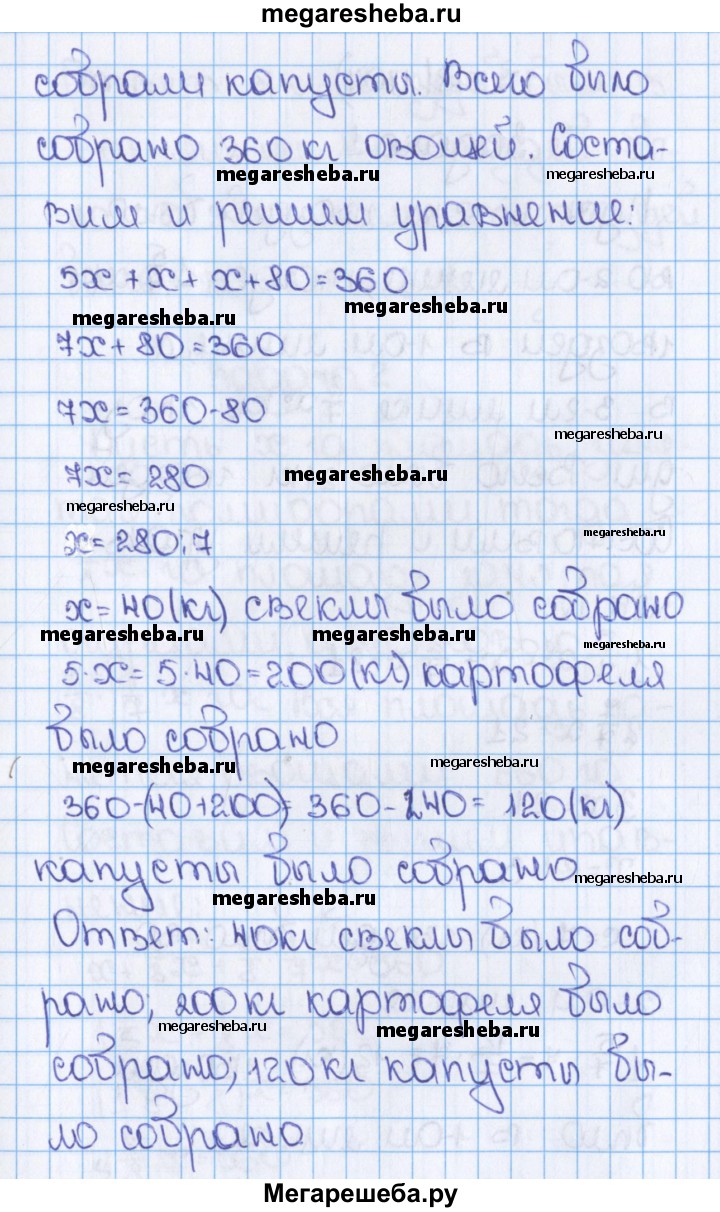 megaresheba.ru
собрали капусты. Всего было
собрано 360 кг овощей. Соста-
megaresheba.ru megaresheba.ru
вим и решим уравнение:
5x + x + x + 80 = 360
megaresheba.ru megaresheba.ru
7x + 80 = 360
7x = 360 - 80
megaresheba.ru
7x = 280 megaresheba.ru
megaresheba.ru
x = 280 : 7 megaresheba.ru
x = 40 (кг) свеклы было собрано
megaresheba.ru megaresheba.ru megaresheba.ru
5·x = 5·40 = 200 (кг) картофеля
было собрано
megaresheba.ru megaresheba.ru
360 - (40 + 200) = 360 - 240 = 120 (кг)
капусты было собрано
megaresheba.ru megaresheba.ru
Ответ: 40 кг свеклы было соб-
рано; 200 кг картофеля было
megaresheba.ru megaresheba.ru
собрано; 120 кг капусты бы-
ло собрано
Мегарешеба.ру